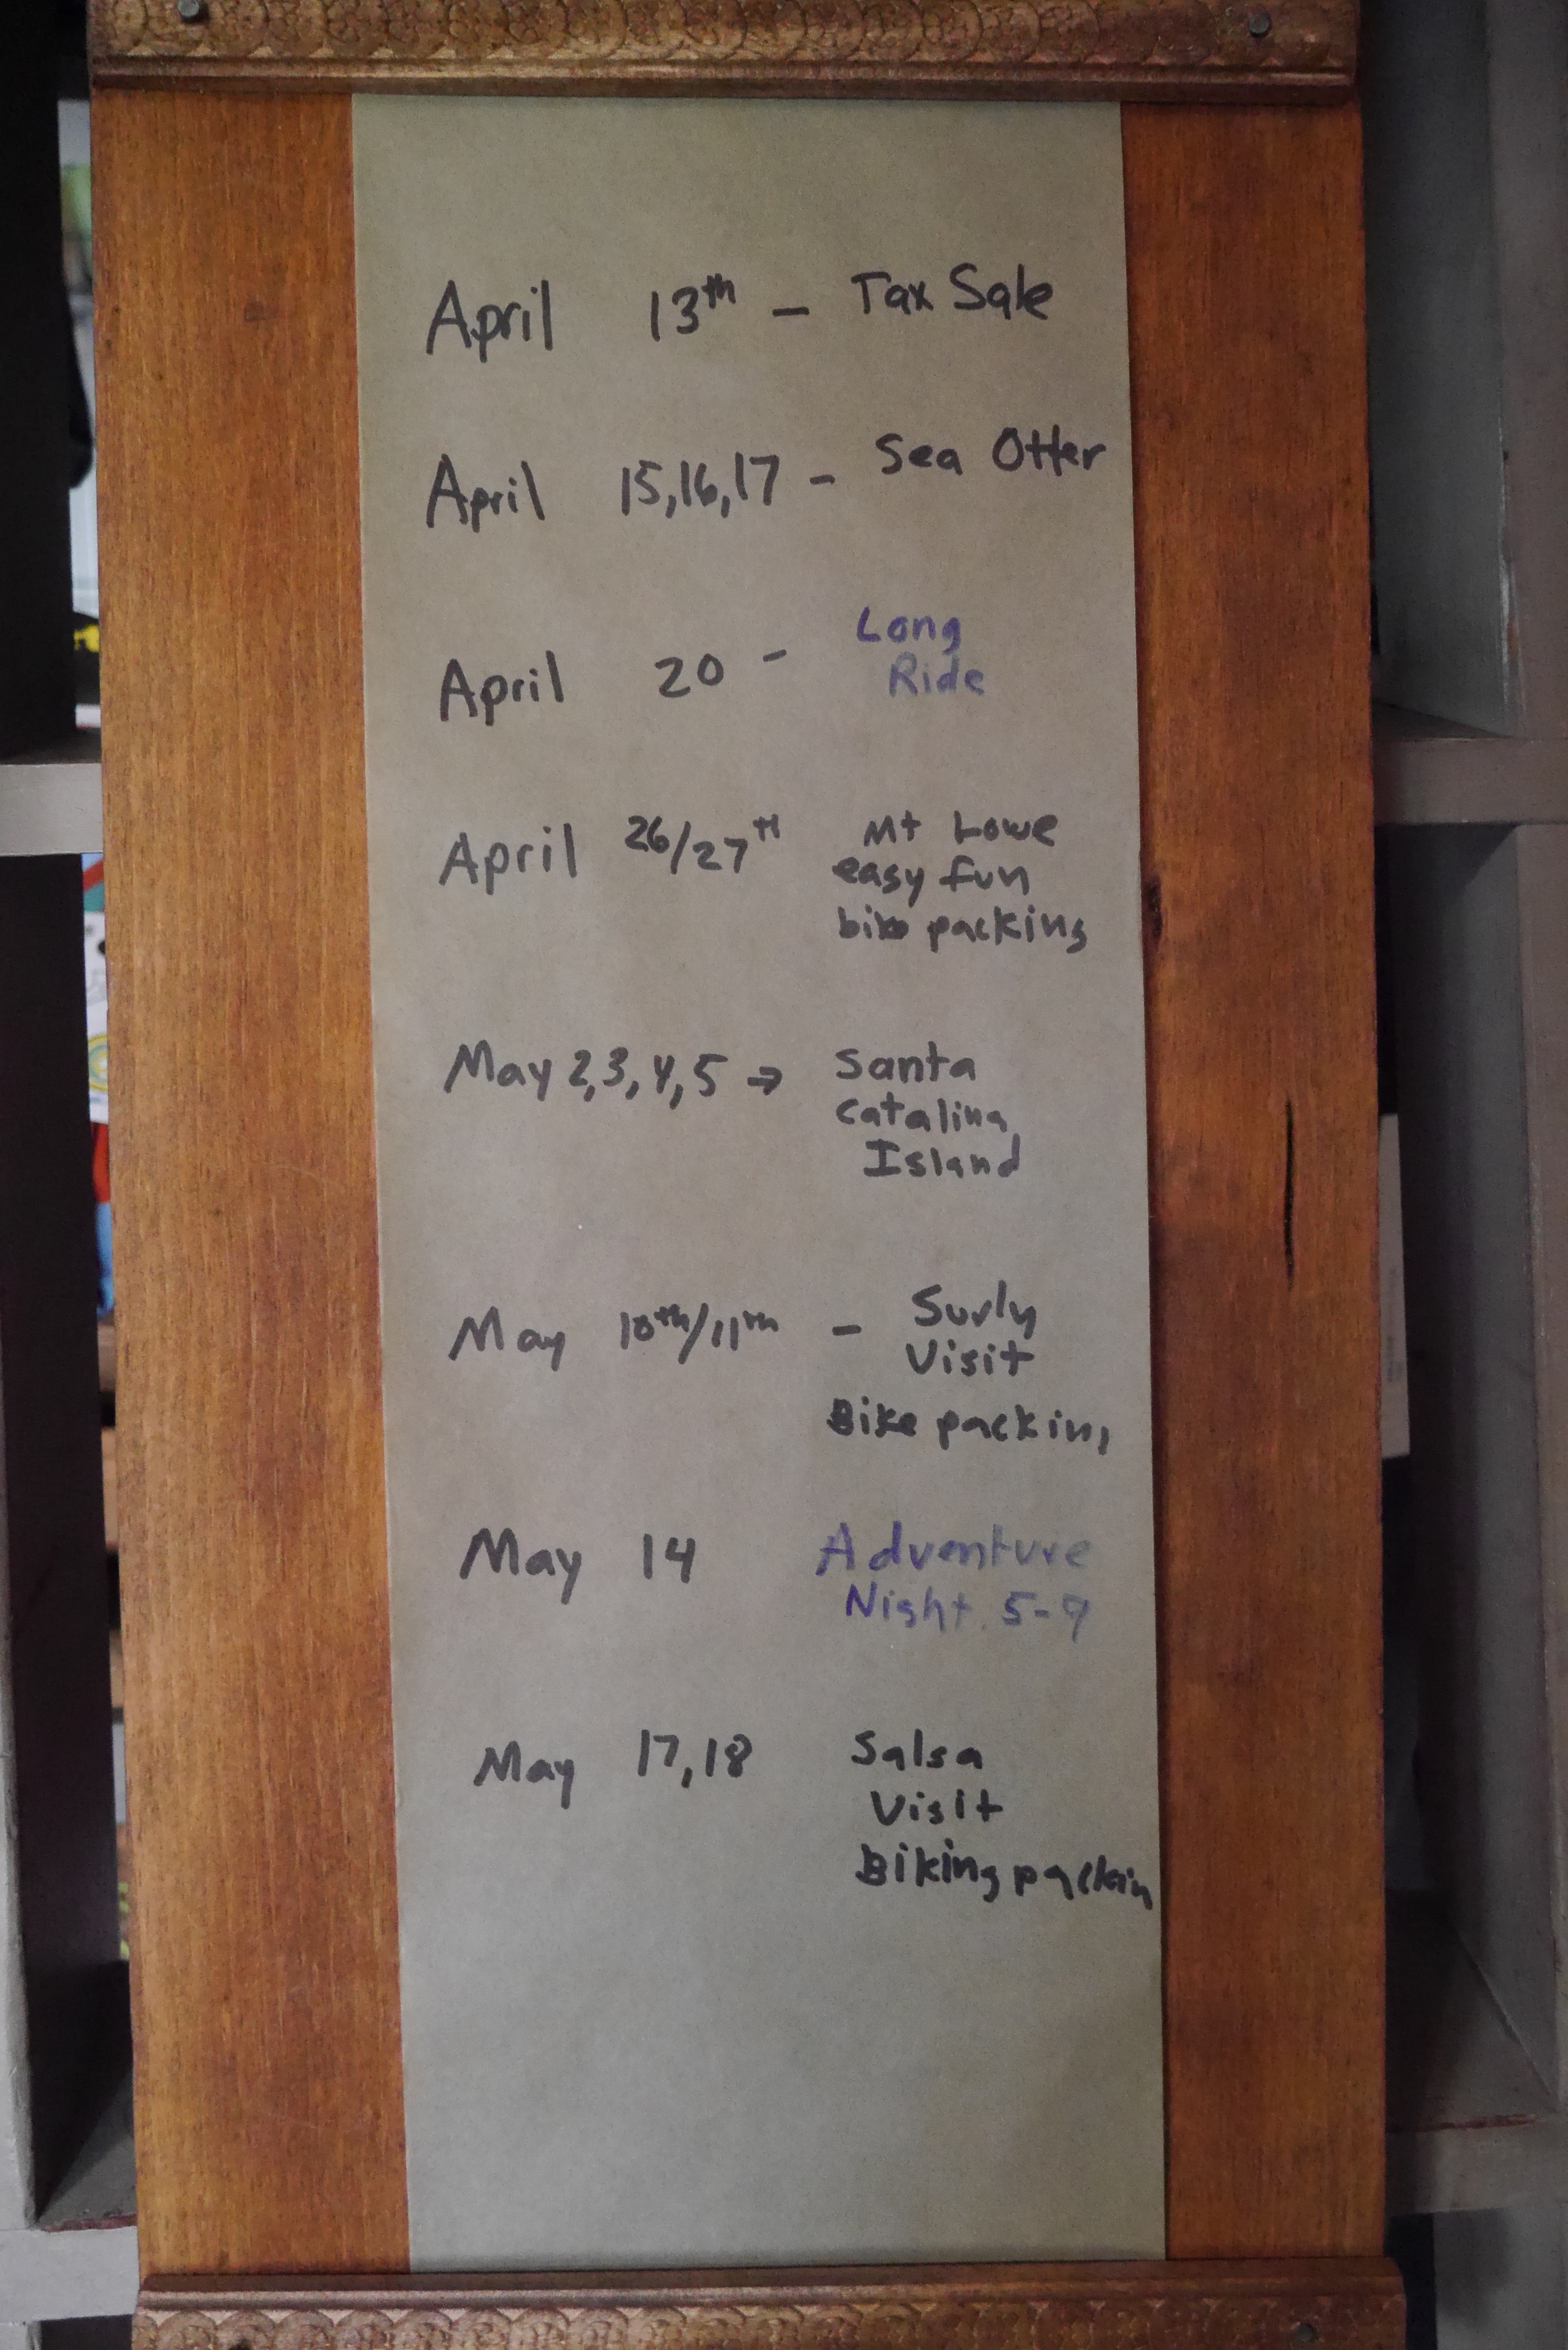 April 13th - Tax Sale
April 15,16,17 - Sea Otter
April 20 - Long
Ride
April 26/27TH Mt Lowe
easy fun
bike packing
May 2,3,4,5 → Santa
Catalina
Island
May 10th/11th - Surly
Visit
Bike packing
May 14 Adventure
Night. 5-9
May 17,18 Salsa
Visit
Biking packin